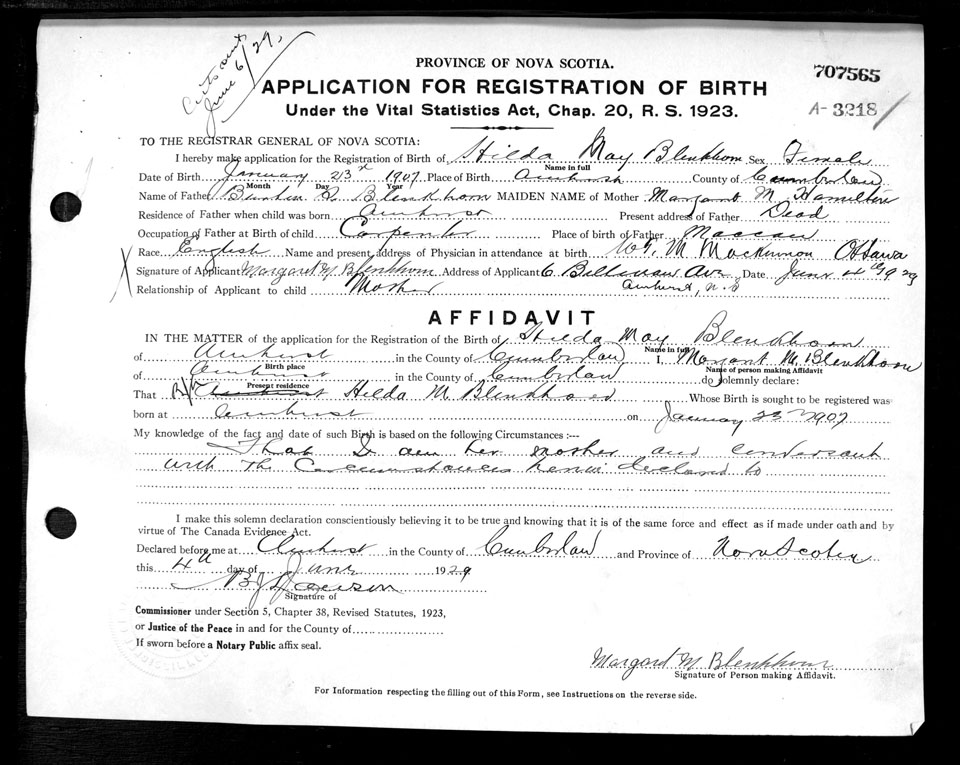 Certs sent
June 6/29,
PROVINCE OF NOVA SCOTIA.
707565
APPLICATION FOR REGISTRATION OF BIRTH
Under the Vital Statistics Act, Chap. 20, R. S. 1923.
A-3218
TO THE REGISTRAR GENERAL OF NOVA SCOTIA:
I hereby make application for the Registration of Birth of Hilda May Blenkhorn Sex Female
Name in full
Date of Birth January 23rd 1907 Place of Birth Amherst County of Cumberland
Month Day Year
Name of Father Blenkhorn MAIDEN NAME of Mother Margaret M. Hamilton
Residence of Father when child was born Amherst Present address of Father Dead
Occupation of Father at Birth of child Carpenter Place of birth of Father Maccan
Race English Name and present address of Physician in attendance at birth M Mackinnon Ottawa
X Signature of Applicant Margaret M Blenkhorn Address of Applicant Ave Date June 4 1929
Relationship of Applicant to child Mother Amherst, N.S
AFFIDAVIT
IN THE MATTER of the application for the Registration of the Birth of Hilda May Blenkhorn
Name in full
of Amherst in the County of Cumberland I, Margaret M. Blenkhorn
Birth place Name of person making Affidavit
of Amherst in the County of Cumberland do solemnly declare:
Present residence
That Hilda M. Blenkhorn Whose Birth is sought to be registered was
born at Amherst on January 23 1907
My knowledge of the fact and date of such Birth is based on the following Circumstances :—
That I am her mother and conversant
with the Circumstances herein declared to
I make this solemn declaration conscientiously believing it to be true and knowing that it is of the same force and effect as if made under oath and by
virtue of The Canada Evidence Act.
Declared before me at Amherst in the County of Cumberland and Province of Nova Scotia
this 4th day of June 1929
Signature of
Commissioner under Section 5, Chapter 38, Revised Statutes, 1923,
or Justice of the Peace in and for the County of
If sworn before a Notary Public affix seal.
Margaret M. Blenkhorn
Signature of Person making Affidavit.
For Information respecting the filling out of this Form, see Instructions on the reverse side.